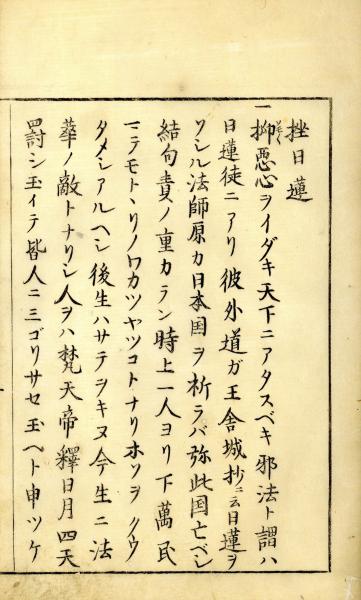 挫日蓮
一抑悪心ヲイダキ天下ニアタスベキ邪法ト謂ハ
日蓮徒ニアリ彼外道ガ王舎城抄ニ云日蓮ヲ
ソシル法師原カ日本国ヲ祈ラバ弥此国亡ベシ
結句責ノ重カラン時上一人ヨリ下萬民
マテモトヽリノワカツヤツコトナリホソヲクウ
タメシアルヘシ後生ハサテヲキヌ今生ニ法
華ノ敵トナリシ人ヲハ梵天帝釋日月四天
罰シ玉イテ皆人ニミゴリサセ玉ヘト申ツケ